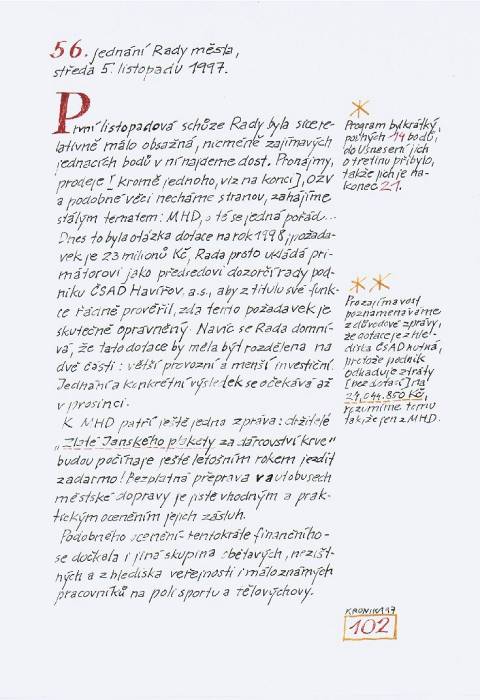 56. jednání Rady města,
středa 5. listopadu 1997.
První listopadová schůze Rady byla sice re-
lativně málo obsažná, nicméně zajímavých
jednacích bodů v ní najdeme dost. Pronájmy,
prodeje [kromě jednoho, viz na konci], OZV
a podobné věci necháme stranou, zahájíme
stálým tematem: MHD, o té se jedná pořád...
Dnes to byla otázka dotace na rok 1998, požada-
vek je 23 milionů Kč, Rada proto ukládá pri-
mátorovi jako předsedovi dozorčí rady pod-
niku ČSAD Havířov, a.s., aby z titulu své funk-
ce řádně prověřil, zda tento požadavek je
skutečně oprávněný. Navíc se Rada domní-
vá, že tato dotace by měla být rozdělena na
dvě části: větší provozní a menší investiční.
Jednání a konkrétní výsledek se očekává až
v prosinci.
K MHD patří ještě jedna zpráva: držitelé
„Zlaté Janského plakety za dárcovství krve"
budou počínaje ještě letošním rokem jezdit
zadarmo! Bezplatná přeprava v autobusech
městské dopravy je jistě vhodným a prak-
tickým oceněním jejich zásluh.
Podobného ocenění - tentokráte finančního -
se dočkala i jiná skupina obětavých, nezišt-
ných a z hlediska veřejnosti i málo známých
pracovníků na poli sportu a tělovýchovy.
*
Program byl krátký,
pouhých 14 bodů,
do Usnesení jich
o třetinu přibylo,
takže jich je na-
konec 21.
* *
Pro zajímavost
poznamenáváme
z důvodové zprávy,
že dotace je z hle-
diska ČSAD nutná,
protože podnik
odhaduje ztráty
[bez dotací] na
24,044.850 Kč,
rozumíme tomu
tak, že jen z MHD.
KRONIKA 97
102